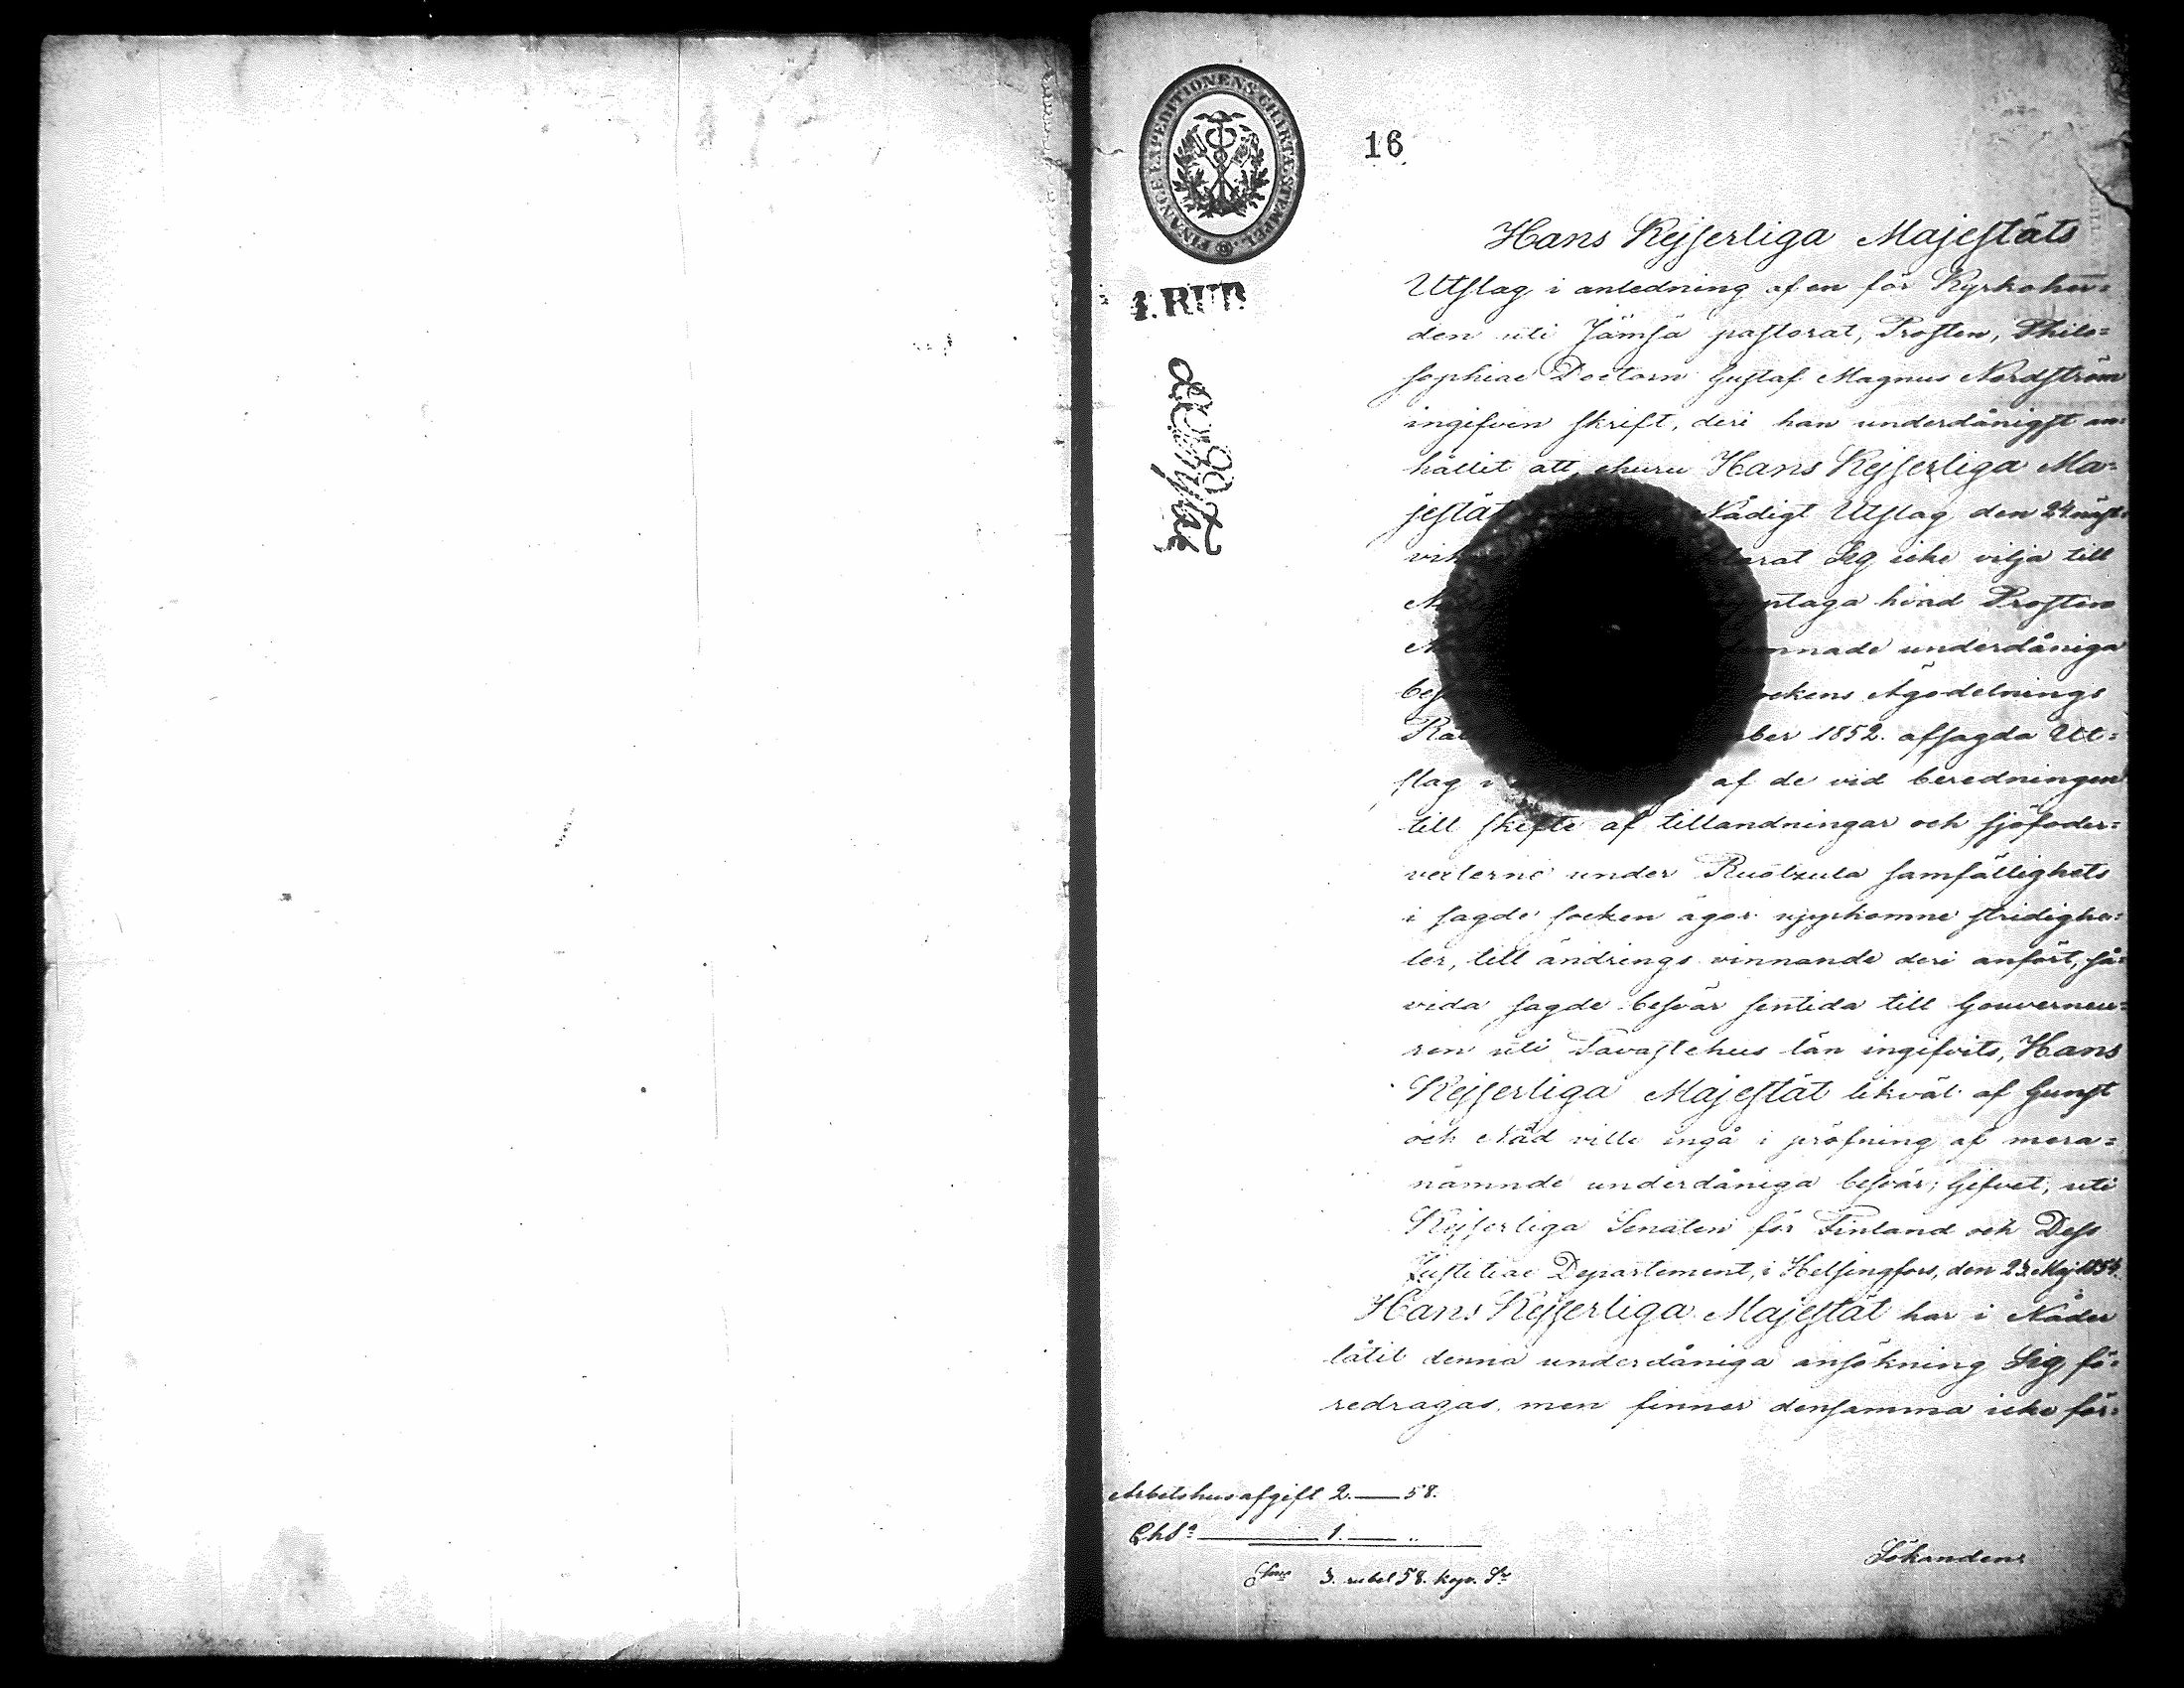 FINANCE EXPEDITIONENS CHARTÆ STEMPEL
16
4. RUB
Hans Kejserliga Majestäts
Utslag i anledning af en för Kyrkoher=
den uti Jämsä pastorat, Prosten, Philo=
sophiae Doctorn Gustaf Magnus Nordström
ingifven skrift, deri han underdånigst an=
hållit att, ehuru Hans Kejserliga Ma=
jestät Nådigt Utslag den 24 näst=
Sig icke vilja till
upptaga hvad Prosten
underdåniga
sockens Ägodelnings
1852. afsagda Ut=
slag i af de vid beredningen
till skifte af tillandningar och sjöfoder=
under samfällighets
i sagde socken ägor uppkomne stridighe=
ter, till ändrings vinnande deri anfört, så=
vida sagde besvär sentida till Gouverneu=
ren uti Tavastehus län ingifvits, Hans
Kejserliga Majestät likväl af Gunst
och Nåd ville ingå i pröfning af mera=
nämnde underdåniga besvär; Gifvet, uti
Kejserliga Senaten för Finland och Dess
Justitiae Departement, i Helsingfors, den 23. Maj 1854.
Hans Kejserliga Majestät har i Nåder
låtit denna underdåniga ansökning Sig fö=
redragas, men finner densamma icke för=
Arbetshusafgift 2. — 58.
Ch Sa — 1. — "
Sma 3. rubel 58. kop. Sr
Sökanden